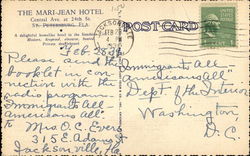 THE MARI-JEAN HOTEL
Central Ave. at 24th St.
ST. PETERSBURG, FLA.
A delightful homelike hotel in the
Modern,
Private
POST CARD
JACKSONVILLE
FEB 28
4 PM
Feb. 28-39
Please send the
booklet in con-
nection with the
radio program
"Immigrants All
Americans All"
to
Mrs O.C. Evers
315 E. Adams St
Jacksonville, Fla.
"Immigrants All
Americans All"
Dept. of the Interior
Washington
D.C.